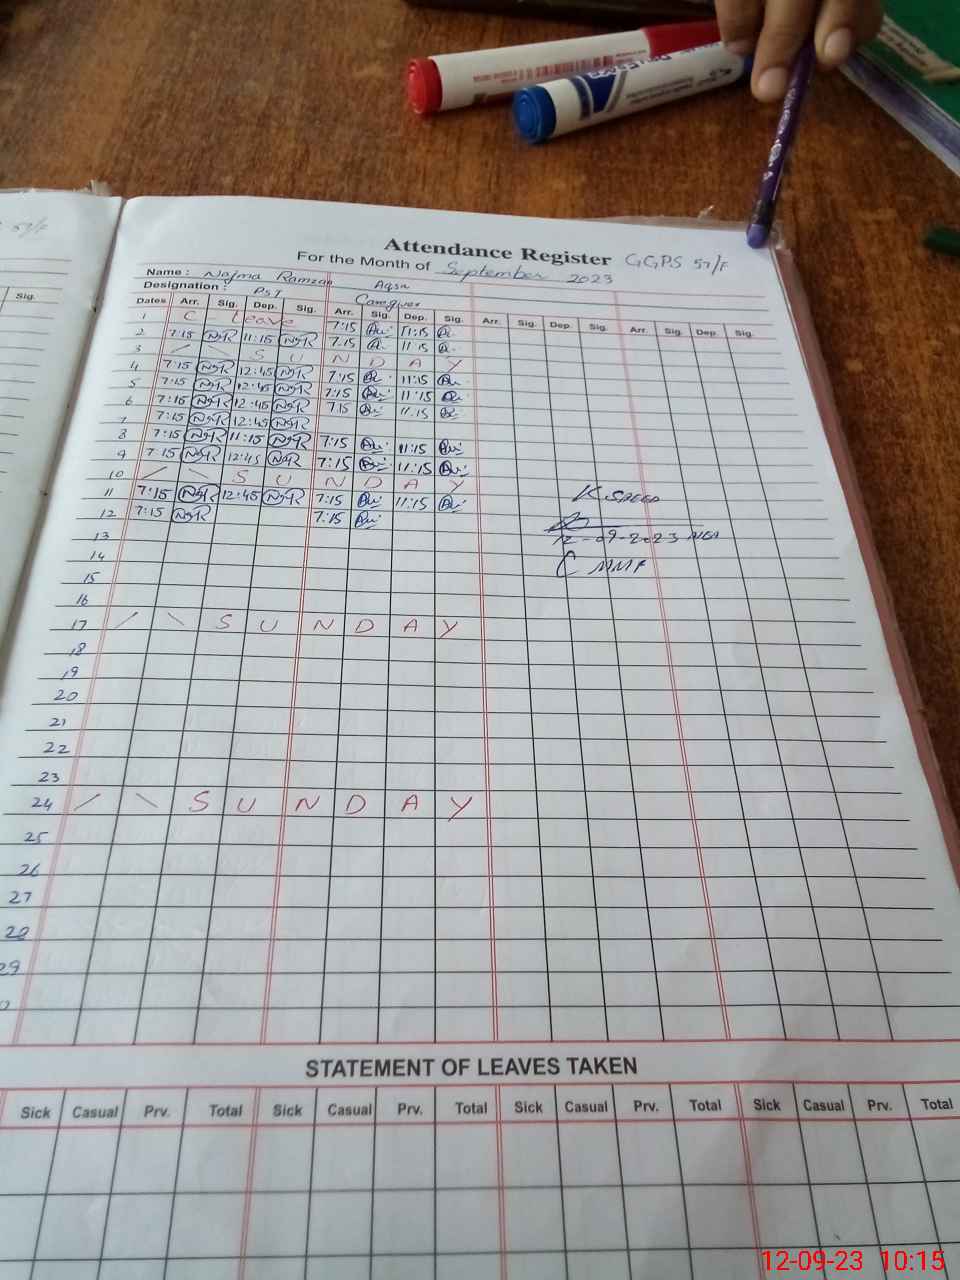 57/F
Sig.
Attendance Register GGPS 57/F
For the Month of September 2023
Name : Najma Ramzan Aqsa
Designation : PST Caregiver
Dates Arr. Sig. Dep. Sig. Arr. Sig. Dep. Sig. Arr. Sig. Dep. Sig. Arr. Sig. Dep. Sig.
1 C - Leave 7:15 11:15
2 7:15 NSR 11:15 NSR 7:15 11:15
3 / \ S U N D A Y
4 7:15 NSR 12:45 NSR 7:15 11:15
5 7:15 NSR 12:45 NSR 7:15 11:15
6 7:15 NSR 12:45 NSR 7:15 11:15
7 7:15 NSR 12:45 NSR
8 7:15 NSR 11:15 NSR 7:15 11:15
9 7:15 NSR 12:45 NSR 7:15 11:15
10 / \ S U N D A Y
11 7:15 NSR 12:45 NSR 7:15 11:15
12 7:15 NSR 7:15
K SAEED
12-09-2023
C MMF
13
14
15
16
17 / \ S U N D A Y
18
19
20
21
22
23
24 / \ S U N D A Y
25
26
27
28
29
STATEMENT OF LEAVES TAKEN
Sick Casual Prv. Total Sick Casual Prv. Total Sick Casual Prv. Total Sick Casual Prv. Total
12-09-23 10:15